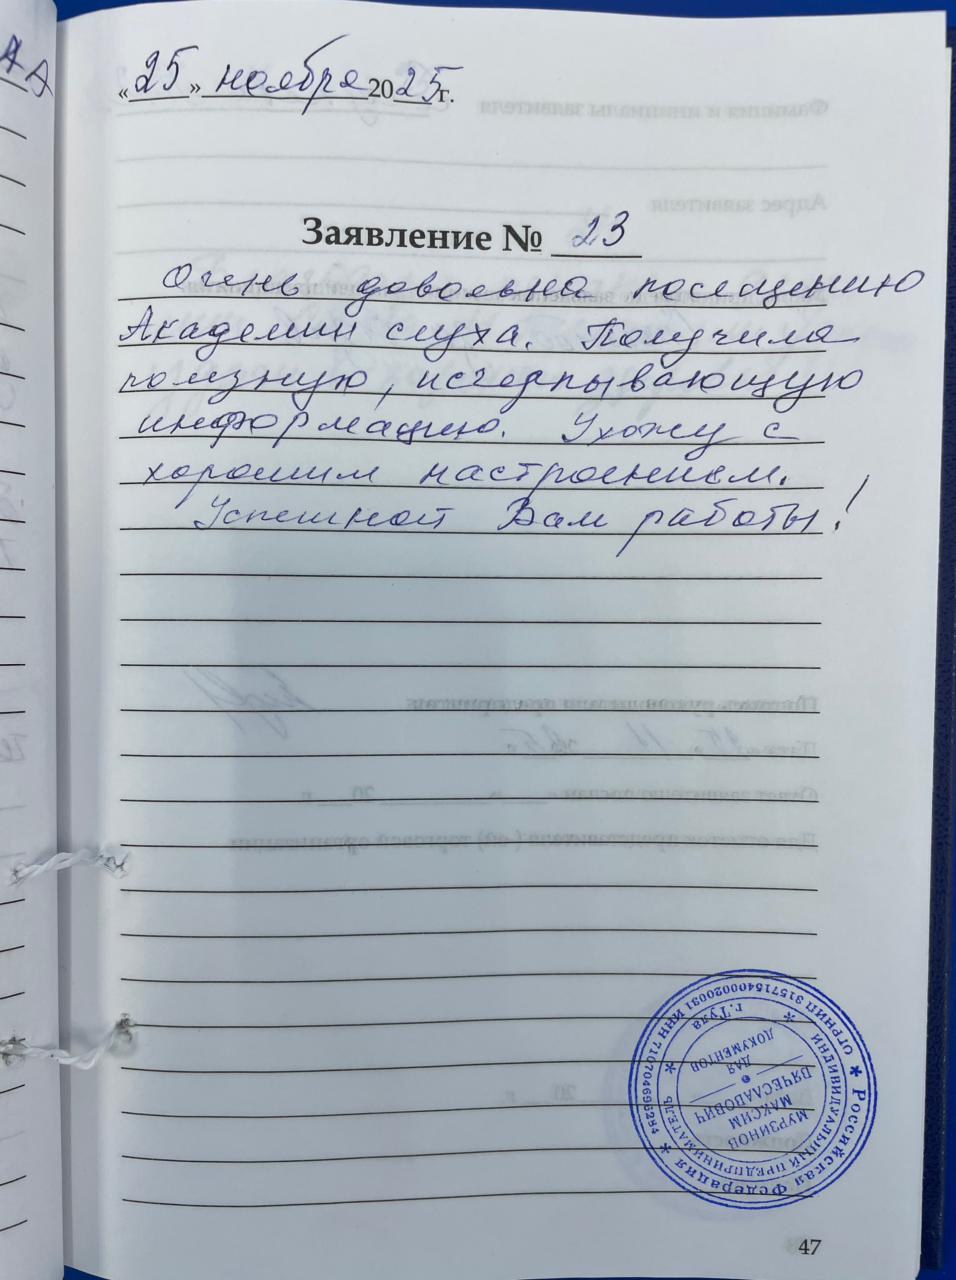 «25» ноября 2025 г.
Заявление № 23
Очень довольна посещению
Академии слуха. Получила
полезную, исчерпывающую
информацию. Ухожу с
хорошим настроением.
Успешной Вам работы!
Фамилия и инициалы заявителя
Адрес заявителя
* Российская Федерация * ИНН 710704695284 ОГРНИП 315715400020031
ИНДИВИДУАЛЬНЫЙ ПРЕДПРИНИМАТЕЛЬ * г. Тула *
МУРЗИНОВ
МАКСИМ
ВЯЧЕСЛАВОВИЧ
ДЛЯ
ДОКУМЕНТОВ
47